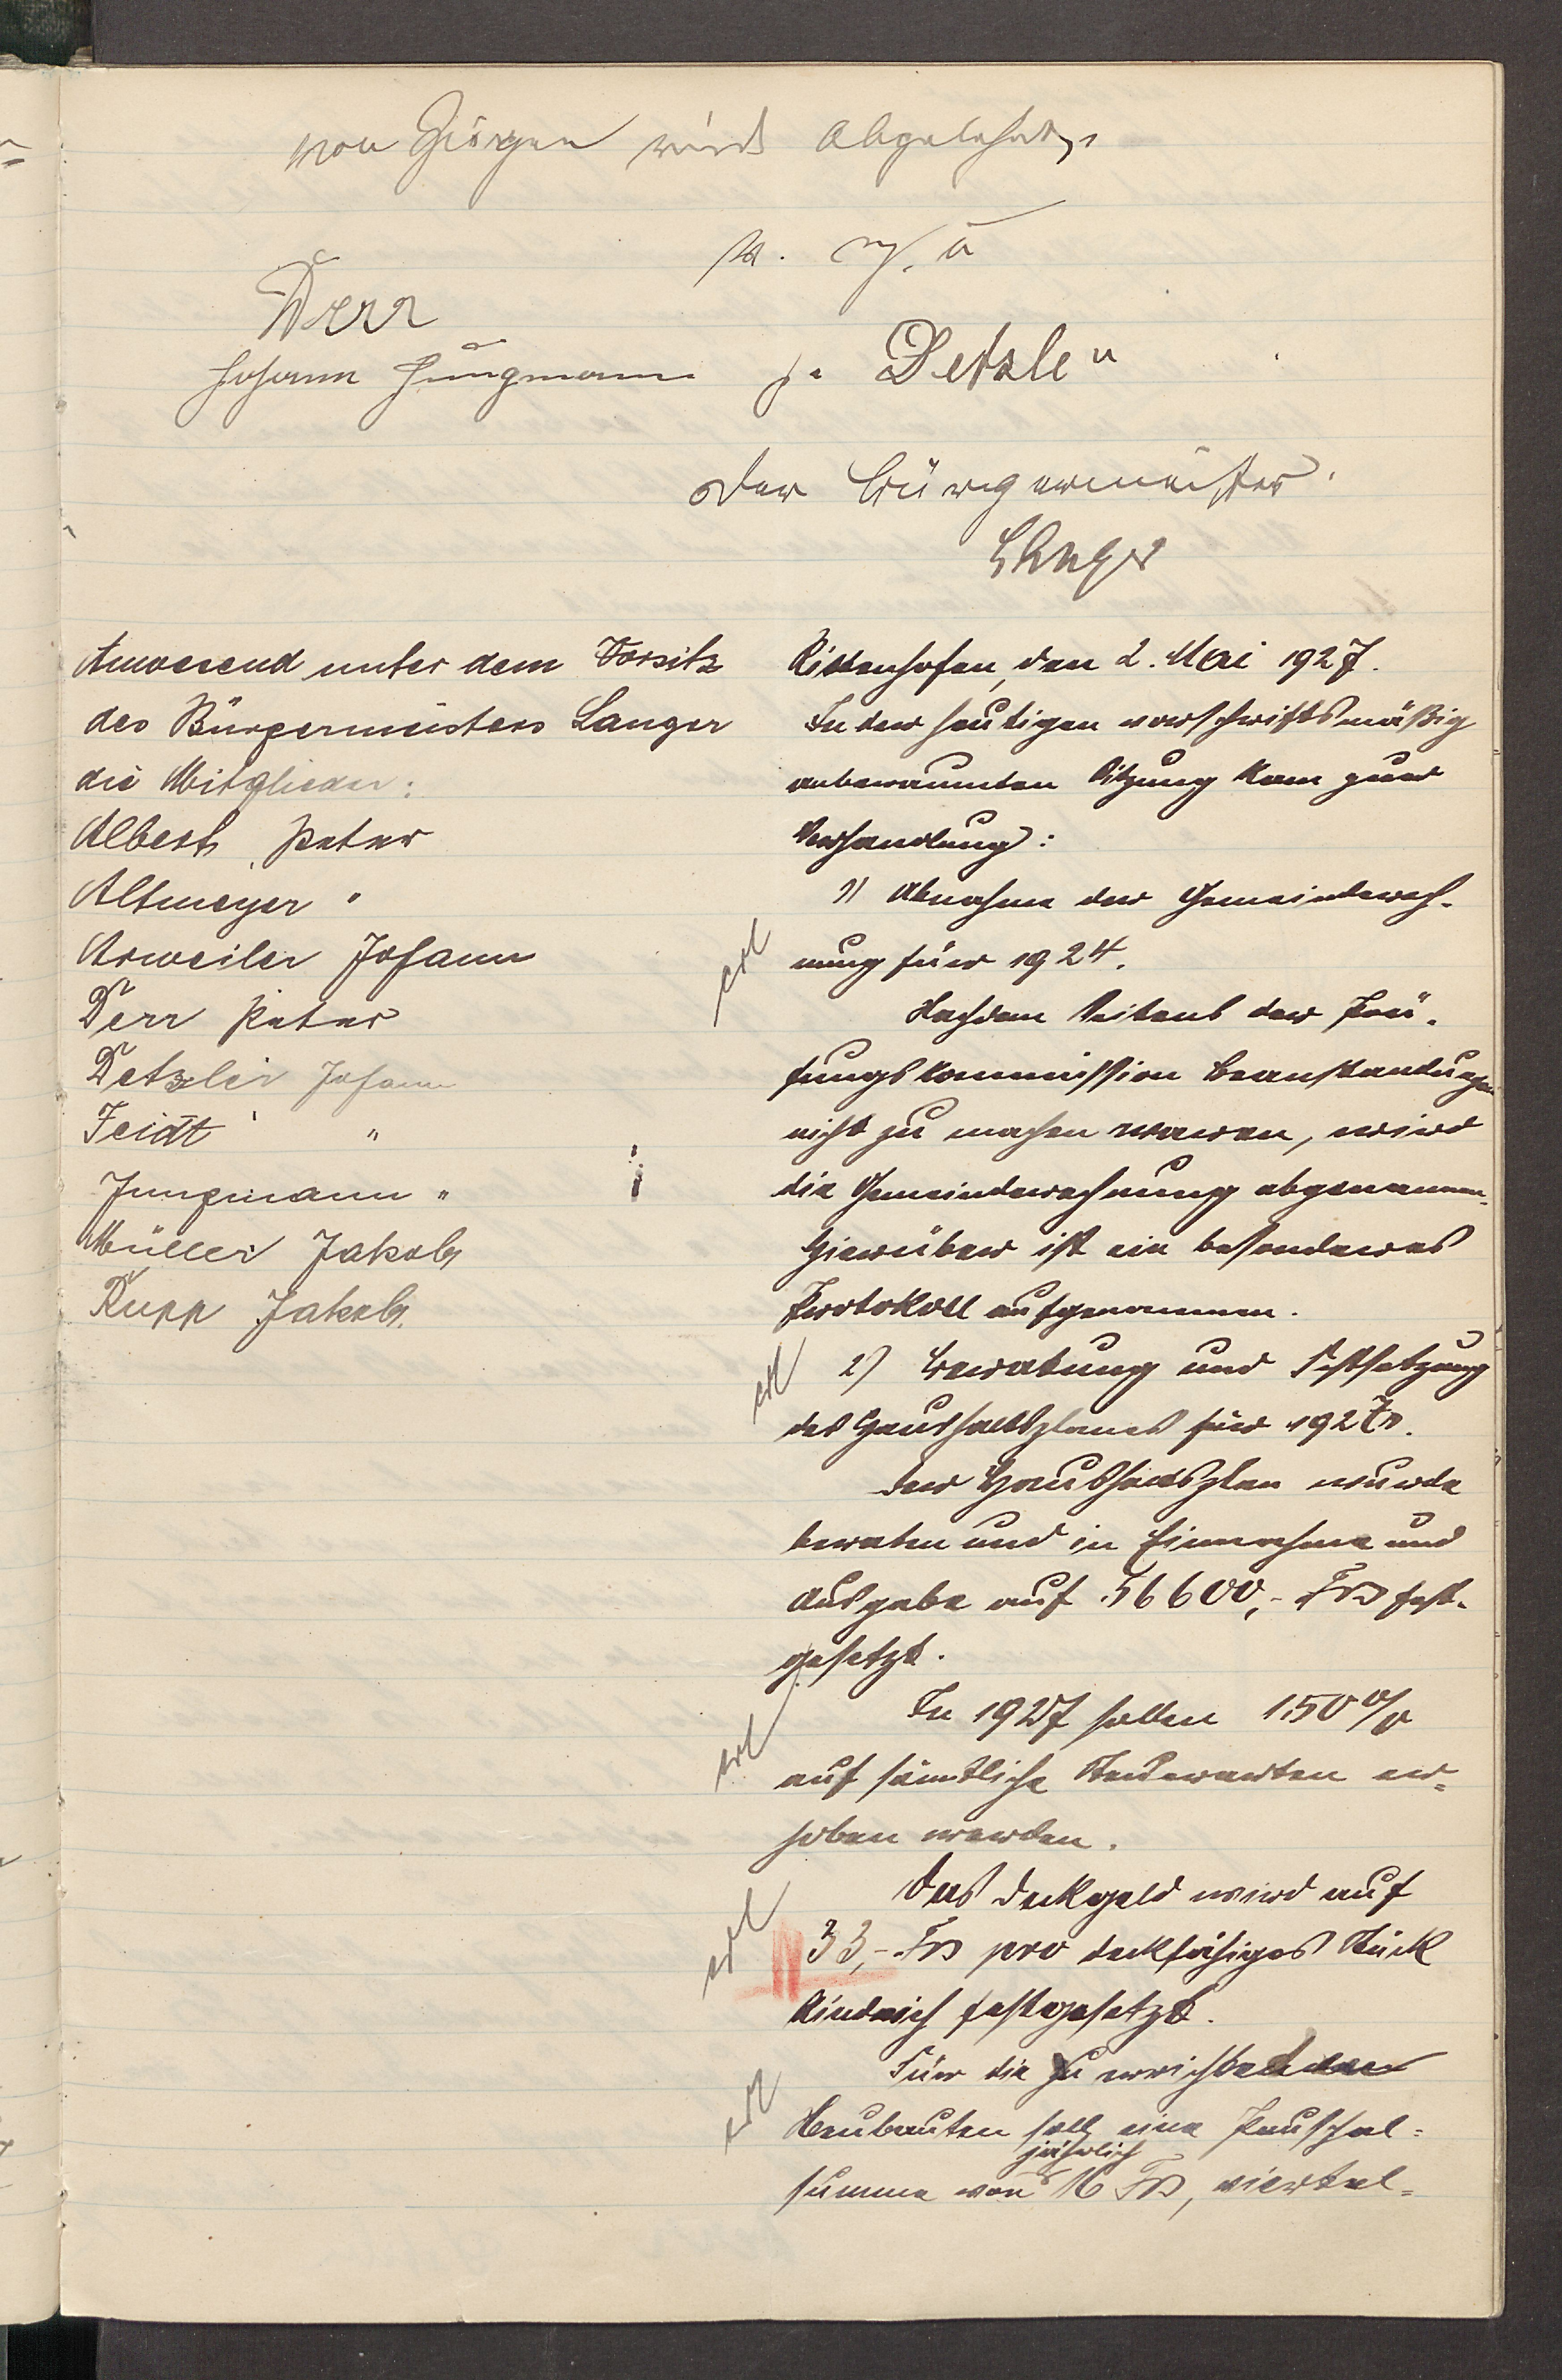 von Görgen wird abgelehnt.
v. g. u.
Derr
Johann Jungmann J. Detzle n
Der Bürgermeister.
Langer
Anwesend unter dem Vorsitz
des Bürgermeisters Langer
die Mitglieder:
Albert, Peter
Altmeyer "
Arweiler Johann
Derr Peter
Detzler Johann
Feidt "
Jungmann "
Müller Jakob
Rupp Jakob.
Rittenhofen, den 2. Mai 1927.
In der heutigen vorschriftsmäßig
anberaumten Sitzung kam zur
Verhandlung:
1) Abnahme der Gemeinderech-
erl
nung für 1924.
Nachdem Seitens der Prü-
fungskommission Beanstandungen
nicht zu machen waren, wird
die Gemeinderechnung abgenommen.
Hierüber ist ein besonderes
Protokoll aufgenommen.
erl 2) Beratung und Festsetzung
des Haushaltsplanes für 1927.
Der Haushaltsplan wurde
beraten und in Einnahme und
Ausgabe auf 56600,- Frs fest-
gesetzt.
erl In 1927 sollen 150%
auf sämtliche Steuerarten er-
hoben werden.
erl Das Deckgeld wird auf
33,- Frs pro deckfähiges Stück
Rindvieh festgesetzt.
erl Für die zu errichtenden
Neubauten soll eine Pauschal-
jährlich
summe von 16 Frs, viertel-